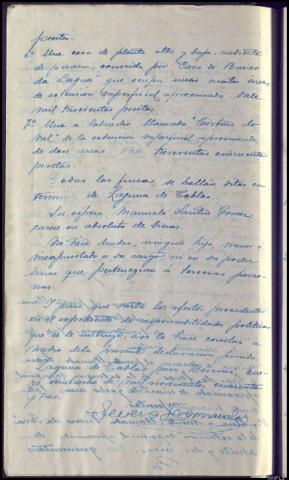 pesetas.
6º Una casa de planta alta y baja, cubierta
de pizarra, conocida por "Casa do Barco
da Lagua" que ocupa unas cuatro areas
de extensión superficial aproximada. Vale
mil trescientas pesetas.
7º Una a labradío llamada "Cortiña do
Val" de la extension superficial aproximada
de doce areas. Vale trescientas cincuenta
pesetas.
Todas las fincas se hallan sitas en
termino de Laguna de Tablas.
Su esposa Manuela Santin Gomez
carece en absoluto de bienes.
No tiene deudas, ningun hijo, menor o
incapacitado a su cargo ni en su poder
bienes que pertenezcan a terceras perso-
nas.
Y para que surta los efectos procedentes
en el expediente de responsabilidades politicas
que se le instruye, asi lo hace constar a
medio de la presente declaración jurada
Laguna de Tablas para Becerreá
veintiocho de mil novecientos cuarenta
y tres.